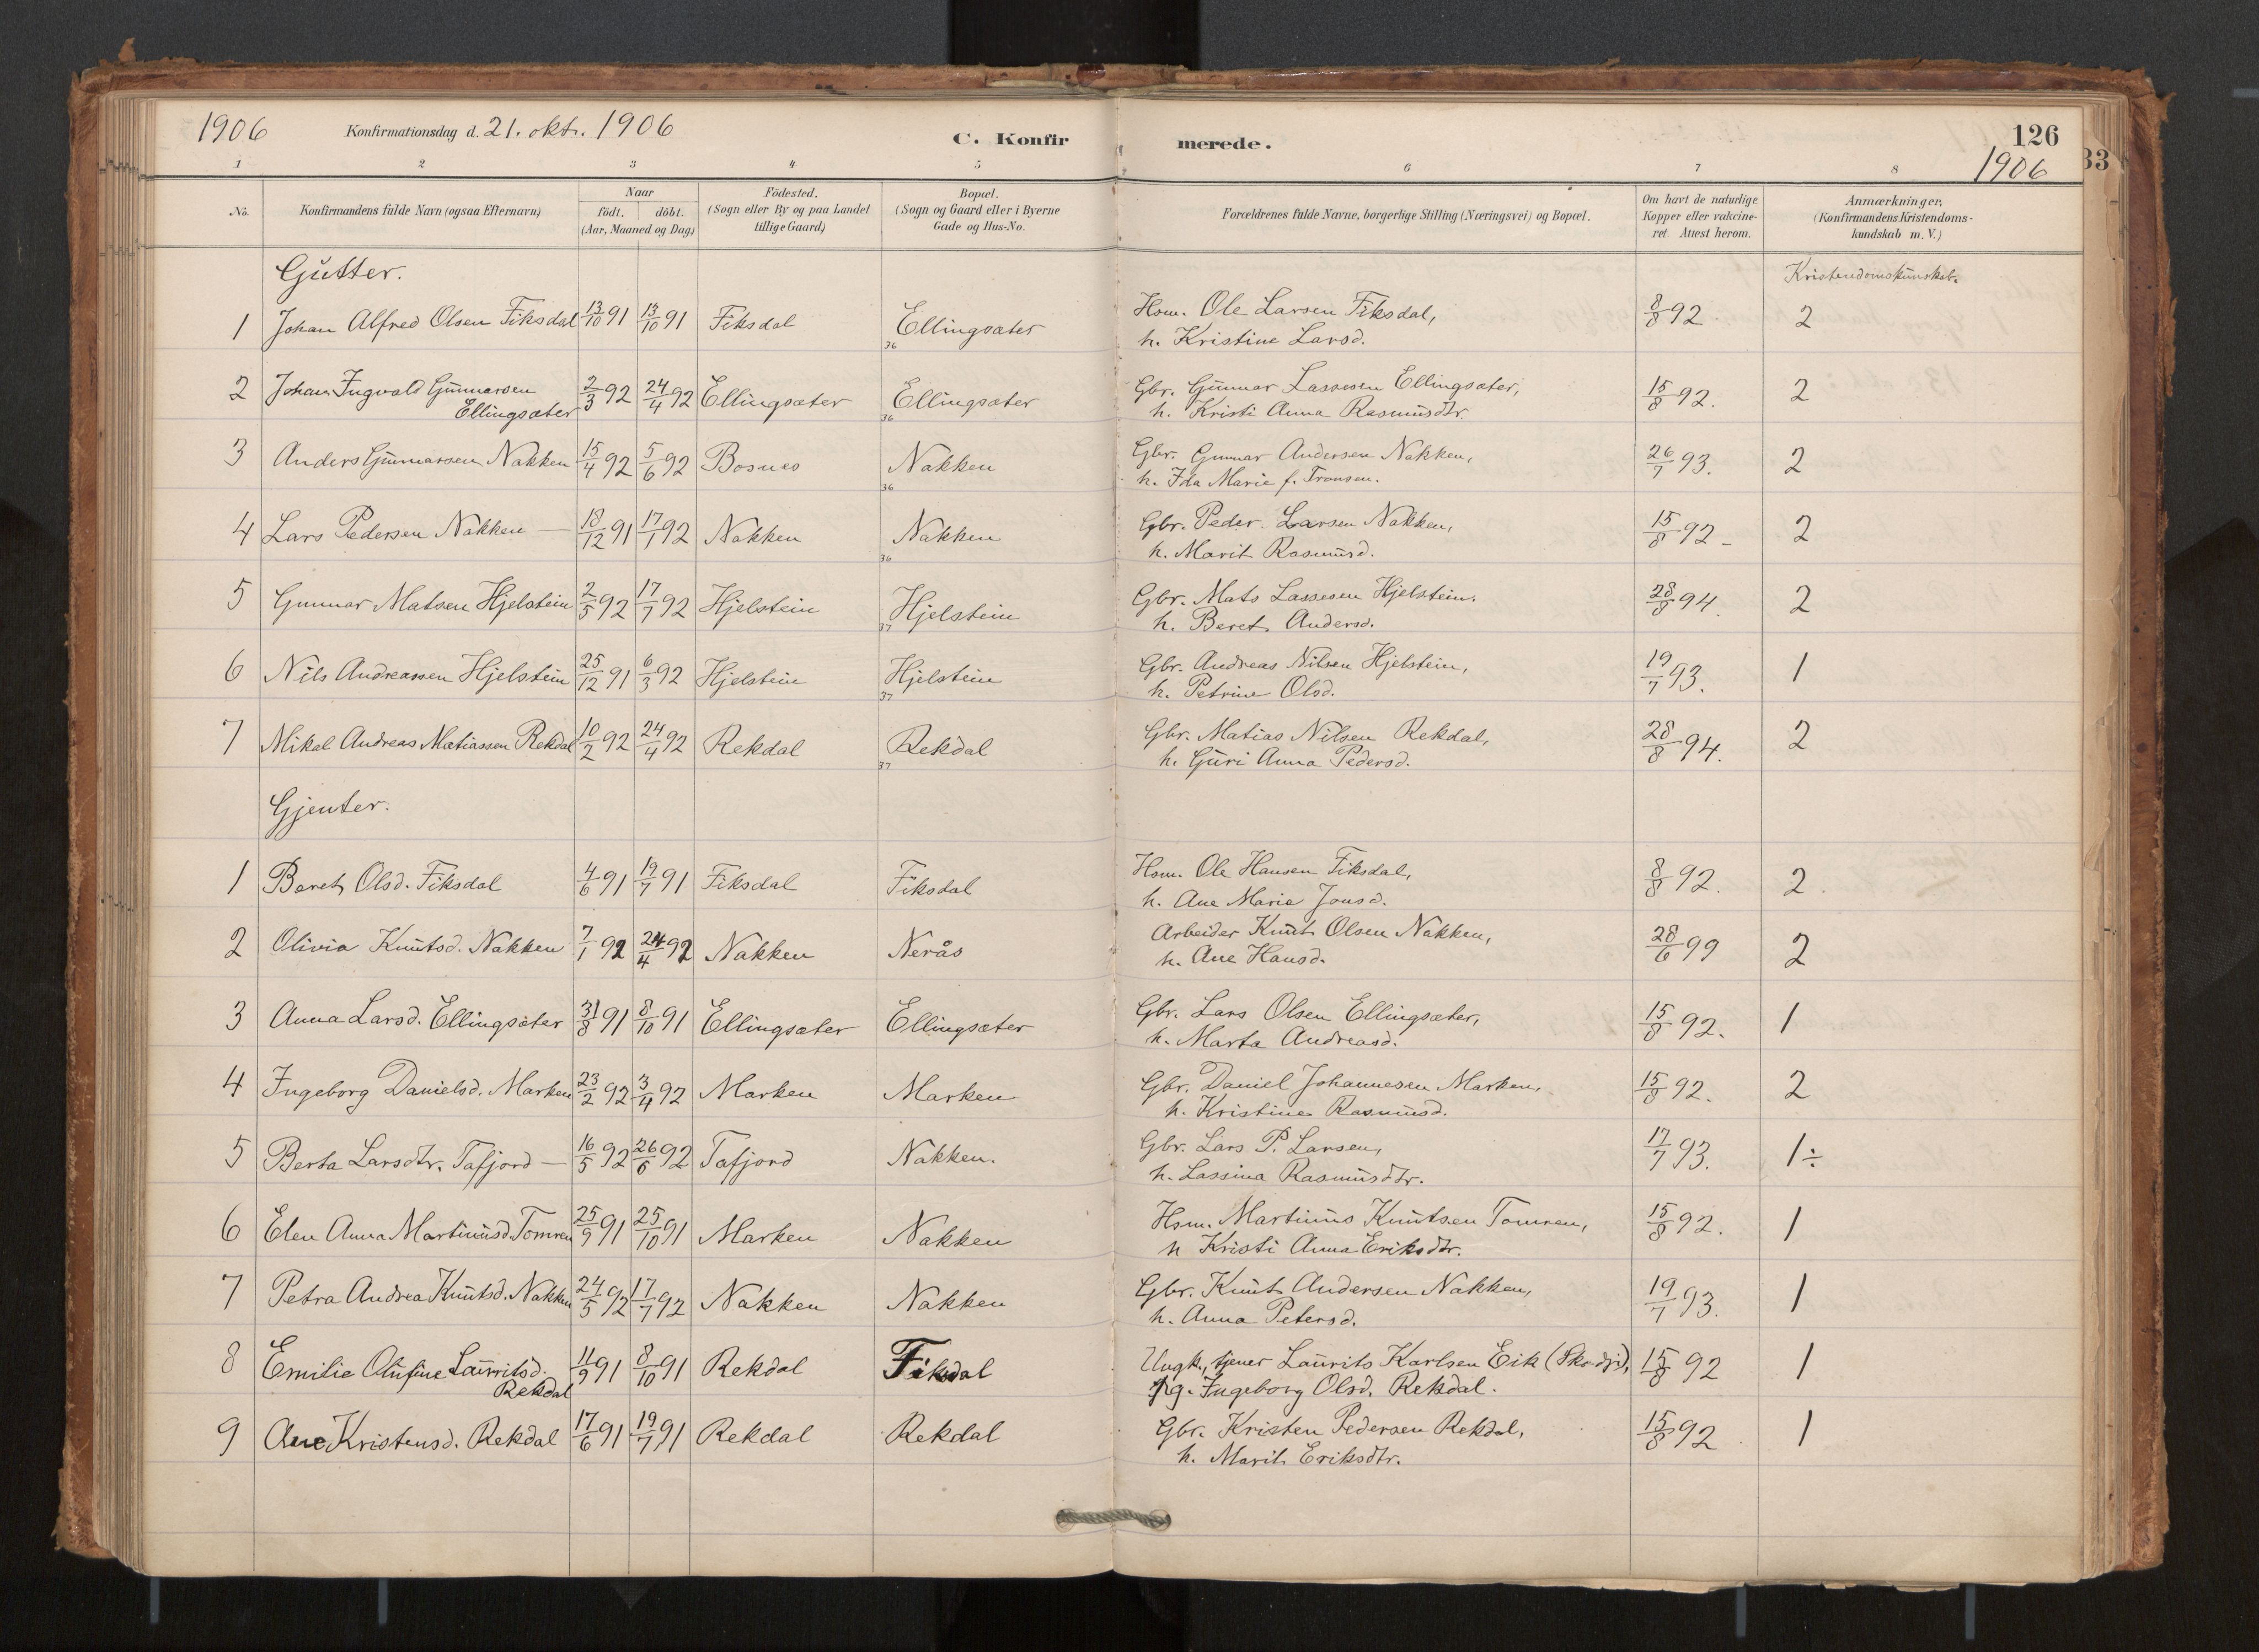 1906 Konfirmationsdag d. 21. okt. 1906 C. Konfir merede. 126
33
1906
1 2 3 4 5 6 7 8
No. Konfirmandens fulde Navn (ogsaa Efternavn) Naar födt. döbt. (Aar, Maaned og Dag) Födested. (Sogn eller By og paa Landet tillige Gaard) Bopæl. (Sogn og Gaard eller i Byerne Gade og Hus-No. Forældrenes fulde Navne, borgerlige Stilling (Næringsvei) og Bopæl. Om havt de naturlige Kopper eller vakcineret. Attest herom. Anmærkninger. (Konfirmandens Kristendomskundskab m. V.)
Gutter. Kristendomskunskab.
1 Johan Alfred Olsen Fiksdal 13/10 91 13/10 91 Fiksdal Ellingsæter 36 Hsm. Ole Larsen Fiksdal, 8/8 92 2
h. Kristine Larsd.
2 Johan Ingvald Gunnarsen Ellingsæter 2/3 92 24/4 92 Ellingsæter Ellingsæter 36 Gbr. Gunnar Lassesen Ellingsæter, 15/8 92. 2
h. Kristi Anna Rasmusdtr.
3 Anders Gunnarsen Nakken 15/4 92 5/6 92 Bosnes Nakken 36 Gbr. Gunnar Andersen Nakken, 26/7 93. 2
h. Ida Marie f. Tronsen.
4 Lars Pedersen Nakken — 18/12 91 17/1 92 Nakken Nakken 36 Gbr. Peder Larsen Nakken, 15/8 92 - 2
h. Marit Rasmusd.
5 Gunnar Matsen Hjelstein 2/5 92 17/7 92 Hjelstein Hjelstein 37 Gbr. Mats Lassesen Hjelstein. 28/8 94. 2
h. Beret Andersd.
6 Nils Andreassen Hjelstein 25/12 91 6/3 92 Hjelstein Hjelstein 37 Gbr. Andreas Nilsen Hjelstein, 19/7 93. 1
h. Petrine Olsd.
7 Mikal Andreas Matiassen Rekdal 10/2 92 24/4 92 Rekdal Rekdal 37 Gbr. Matias Nilsen Rekdal, 28/8 94. 2
h. Guri Anna Pedersd.
Gjenter.
1 Beret Olsd. Fiksdal 4/6 91 19/7 91 Fiksdal Fiksdal Hsm. Ole Hansen Fiksdal, 8/8 92. 2.
h. Ane Marie Jonsd.
2 Olivia Knutsd. Nakken 7/1 92 24/4 92 Nakken Nerås Arbeider Knut Olsen Nakken, 28/6 99 2
h. Ane Hansd.
3 Anna Larsd. Ellingsæter 31/8 91 8/10 91 Ellingsæter Ellingsæter Gbr. Lars Olsen Ellingsæter, 15/8 92. 1
h. Marta Andreasd.
4 Ingeborg Danielsd. Marken 23/2 92 3/4 92 Marken Marken Gbr. Daniel Johannesen Marken, 15/8 92. 2
h. Kristine Rasmusd.
5 Berta Larsdtr. Tafjord — 16/5 92 26/6 92 Tafjord Nakken. Gbr. Lars P. Larsen, 17/7 93. 1÷
h. Lassina Rasmusdtr.
6 Elen Anna Martinusd. Tomren 25/9 91 25/10 91 Marken Nakken Hsm. Martinus Knutsen Tomren, 15/8 92. 1
h Kristi Anna Eriksdtr.
7 Petra Andrea Knutsd. Nakken 24/5 92 17/7 92 Nakken Nakken Gbr. Knut Andersen Nakken, 19/7 93. 1
h. Anna Petersd.
8 Emilie Olufine Lauritsd. Rekdal 11/9 91 8/10 91 Rekdal Fiksdal Ungk., tjener Laurits Karlsen Eik (Skodje), 15/8 92 1
pg. Ingeborg Olsd. Rekdal.
9 Ane Kristensd. Rekdal 17/6 91 19/7 91 Rekdal Rekdal Gbr. Kristen Pedersen Rekdal, 15/8 92 1
h. Marit Eriksdtr.